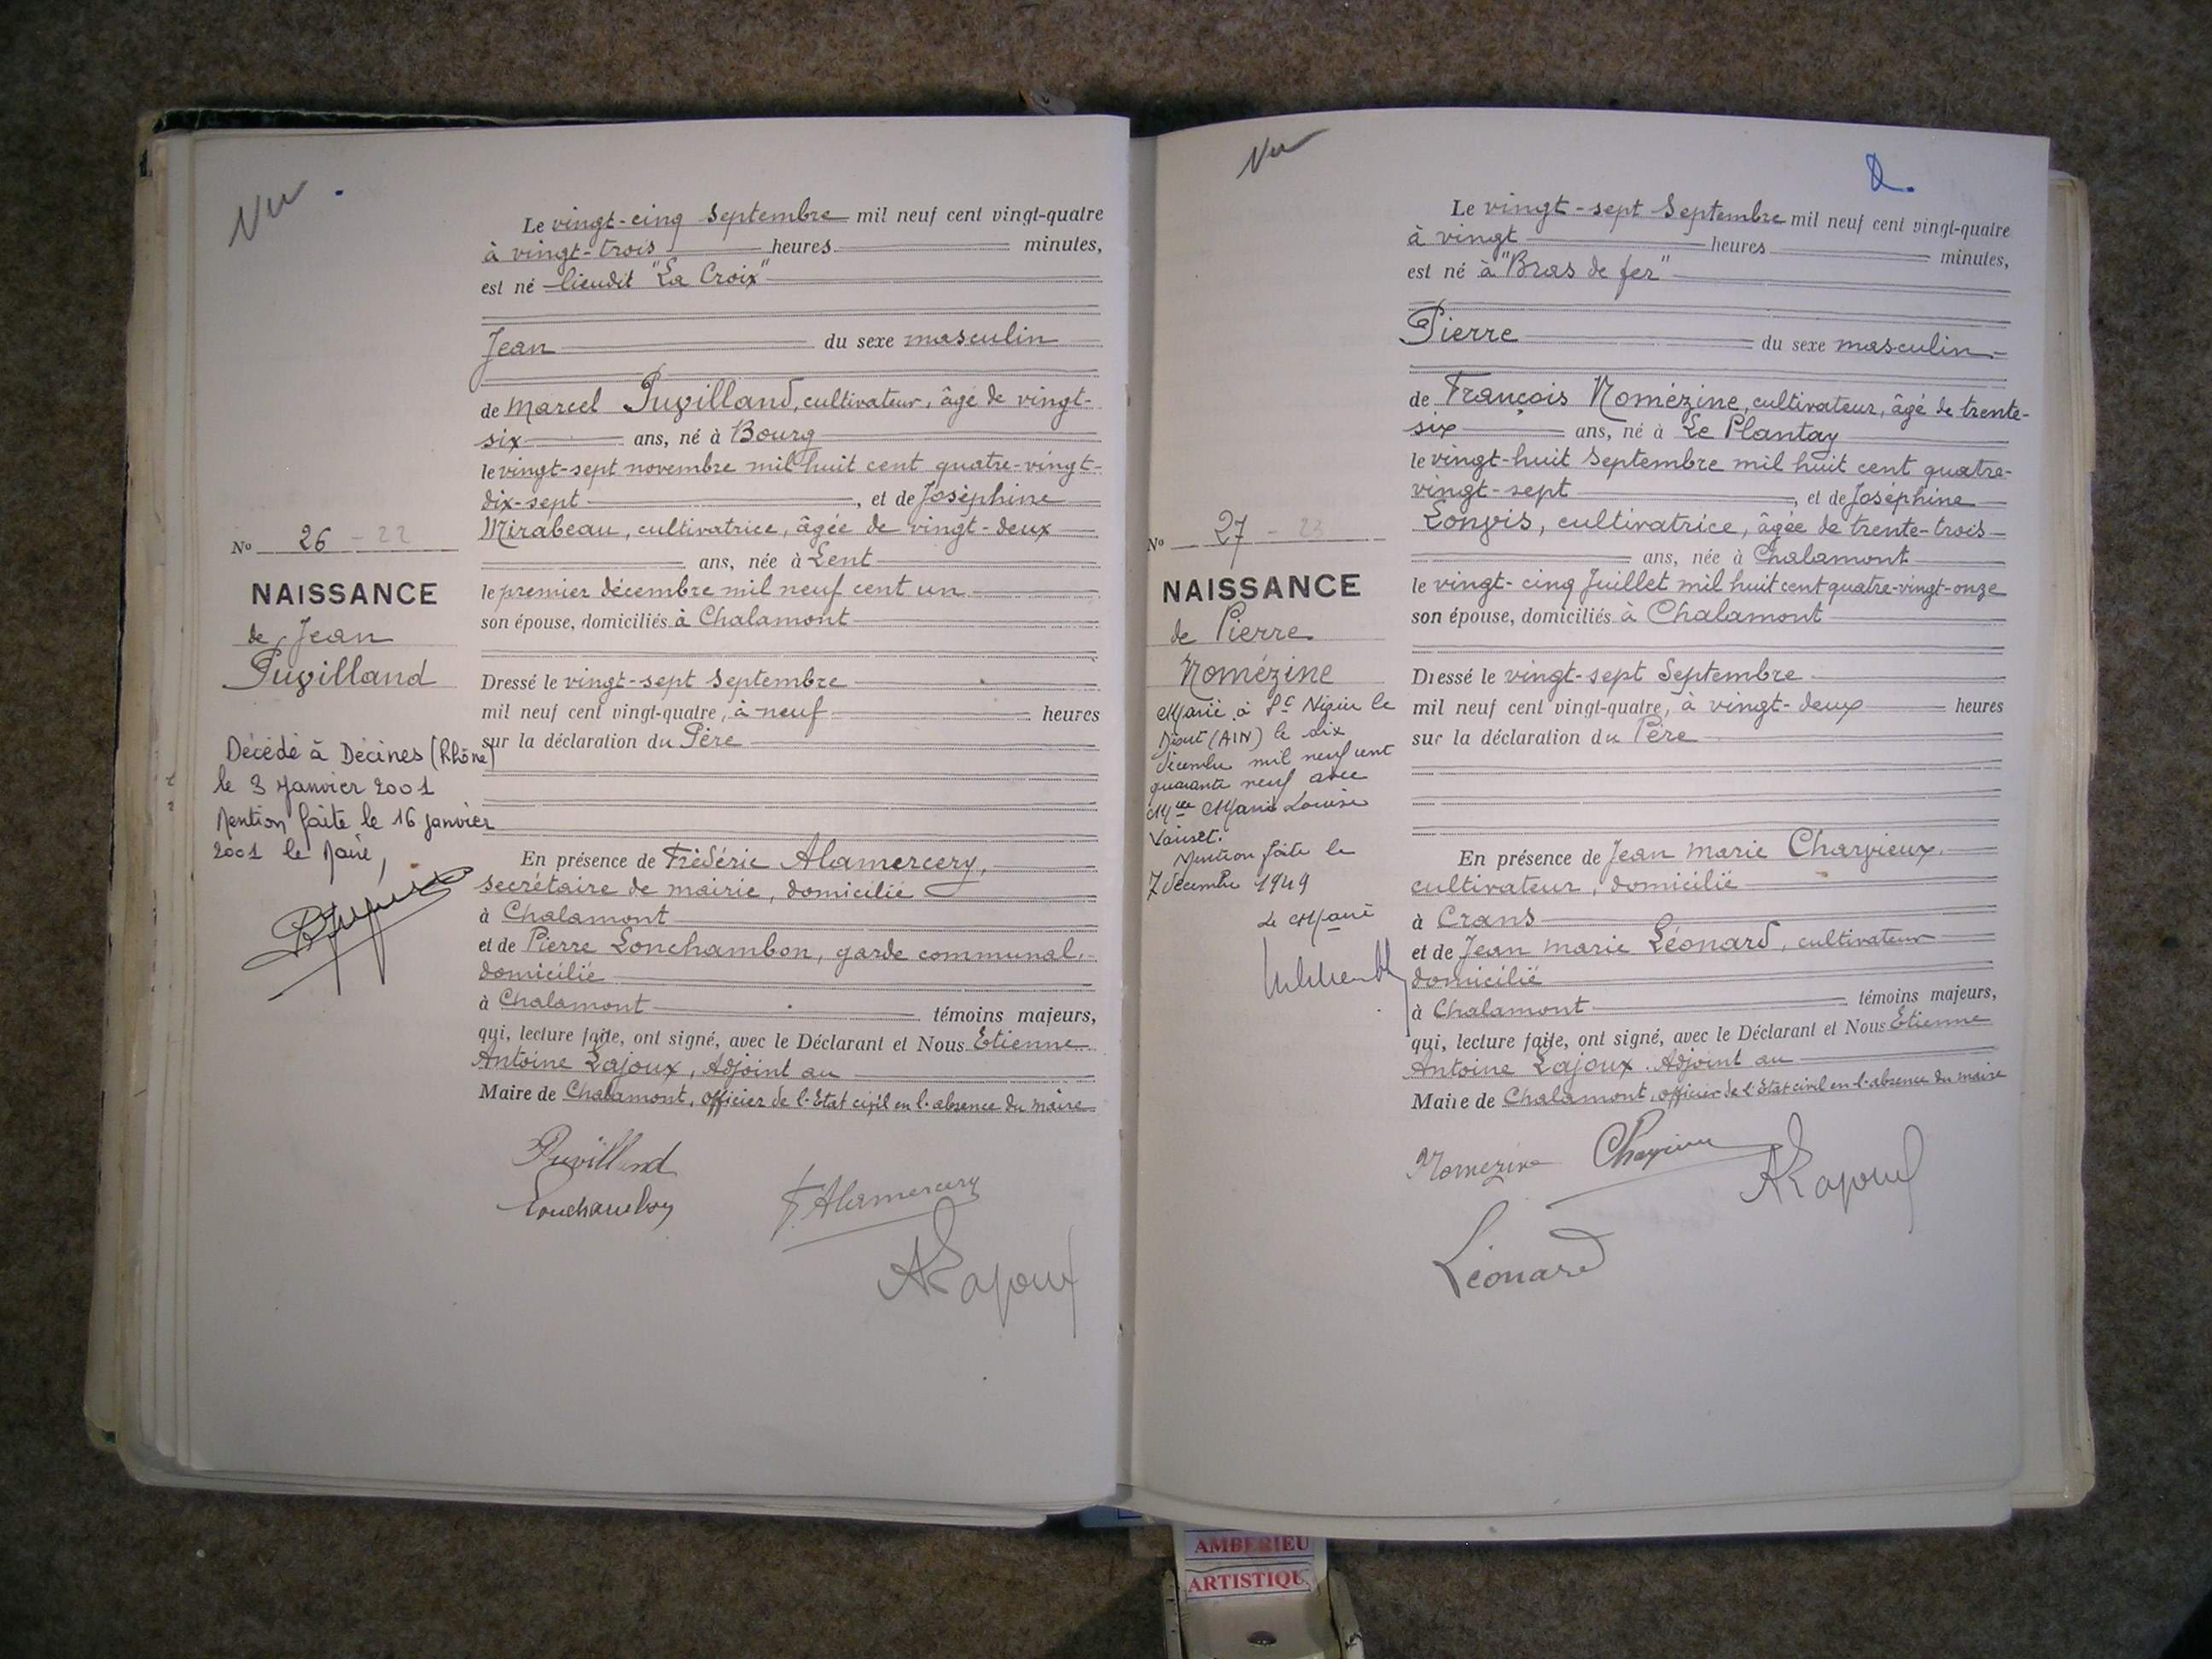 Vu
Le vingt-cinq Septembre mil neuf cent vingt-quatre
à vingt-trois heures minutes,
est né lieudit "La Croix"
Jean du sexe masculin
de Marcel Puvilland, cultivateur, âgé de vingt-
six ans, né à Bourg
le vingt-sept novembre mil huit cent quatre-vingt-
dix-sept, et de Joséphine
Mirabeau, cultivatrice, âgée de vingt-deux
ans, née à Lent
le premier décembre mil neuf cent un
son épouse, domiciliés à Chalamont
Dressé le vingt-sept Septembre
mil neuf cent vingt-quatre, à neuf heures
sur la déclaration du Père
En présence de Frédéric Alamercery,
secrétaire de mairie, domicilié
à Chalamont
et de Pierre Lonchambon, garde communal,
domicilié
à Chalamont témoins majeurs,
qui, lecture faite, ont signé, avec le Déclarant et Nous Etienne
Antoine Lajoux, Adjoint au
Maire de Chalamont, officier de l'Etat civil en l'absence du maire
Puvilland
Lonchambon
F. Alamercery
A Lajoux
No 26 - 22
NAISSANCE
de Jean
Puvilland
Décédé à Décines (Rhône)
le 3 Janvier 2001
Mention faite le 16 janvier
2001 le Maire,
Vu
Le vingt-sept Septembre mil neuf cent vingt-quatre
à vingt heures minutes,
est né à "Bras de fer"
Pierre du sexe masculin
de François Nomézine, cultivateur, âgé de trente-
six ans, né à Le Plantay
le vingt-huit Septembre mil huit cent quatre-
vingt-sept, et de Joséphine
Convis, cultivatrice, âgée de trente-trois
ans, née à Chalamont
le vingt-cinq Juillet mil huit cent quatre-vingt-onze
son épouse, domiciliés à Chalamont
Dressé le vingt-sept Septembre
mil neuf cent vingt-quatre, à vingt-deux heures
sur la déclaration du Père
En présence de Jean Marie Charvieux,
cultivateur, domicilié
à Crans
et de Jean Marie Léonard, cultivateur
domicilié
à Chalamont témoins majeurs,
qui, lecture faite, ont signé, avec le Déclarant et Nous Etienne
Antoine Lajoux, Adjoint au
Maire de Chalamont, officier de l'Etat civil en l'absence du maire
Nomézine
Charvieux
A Lajoux
Léonard
No 27 - 23
NAISSANCE
de Pierre
Nomézine
Marié à St Nizier le
Désert (AIN) le six
décembre mil neuf cent
quarante neuf avec
Mlle Marie Louise
Mention faite le
7 décembre 1949
Le Maire
AMBERIEU
ARTISTIQU